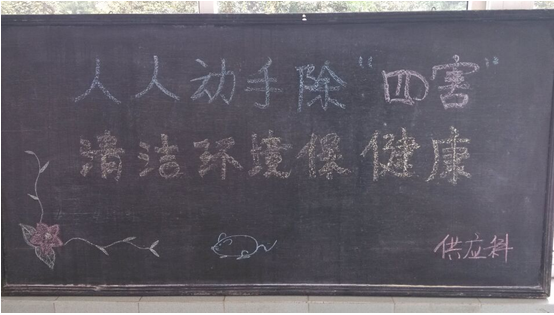 人人动手除“四害”
清洁环境保健康
供应科